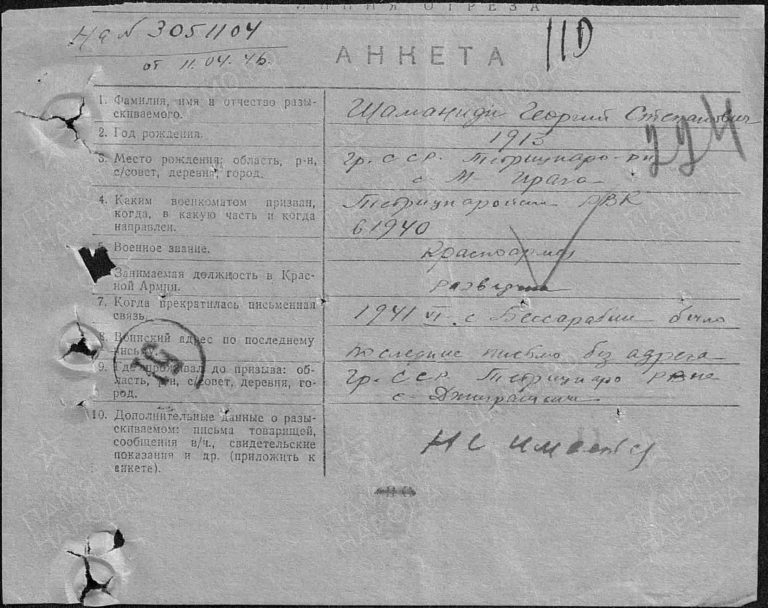 ЛИНИЯ ОТРЕЗА
На № 3051104
от 11.04.46
АНКЕТА
11D
224
1. Фамилия, имя и отчество разы-
скиваемого.
Шаманиди Георгий Степанович
2. Год рождения.
1913
3. Место рождения: область, р-н,
с/совет, деревня, город.
Гр. ССР. Тетрицкаро р-н
с. М. Ирага
4. Каким военкоматом призван,
когда, в какую часть и когда
направлен.
Тетрицкаройским РВК
в 1940
5. Военное звание.
Красноармеец
Занимаемая должность в Крас-
ной Армии.
разведчик
7. Когда прекратилась письменная
связь.
1941 VI. с Бессарабии было
8. Воинский адрес по последнему
письму.
последнее письмо без адреса
9. Где проживал до призыва: об-
ласть, р-н, с/совет, деревня, го-
род.
Гр. ССР. Тетрицкаро
с.
10. Дополнительные данные о разы-
скиваемом: письма товарищей,
сообщения в/ч., свидетельские
показания и др. (приложить к
анкете).
Не имеется
ПАМЯТЬ НАРОДА